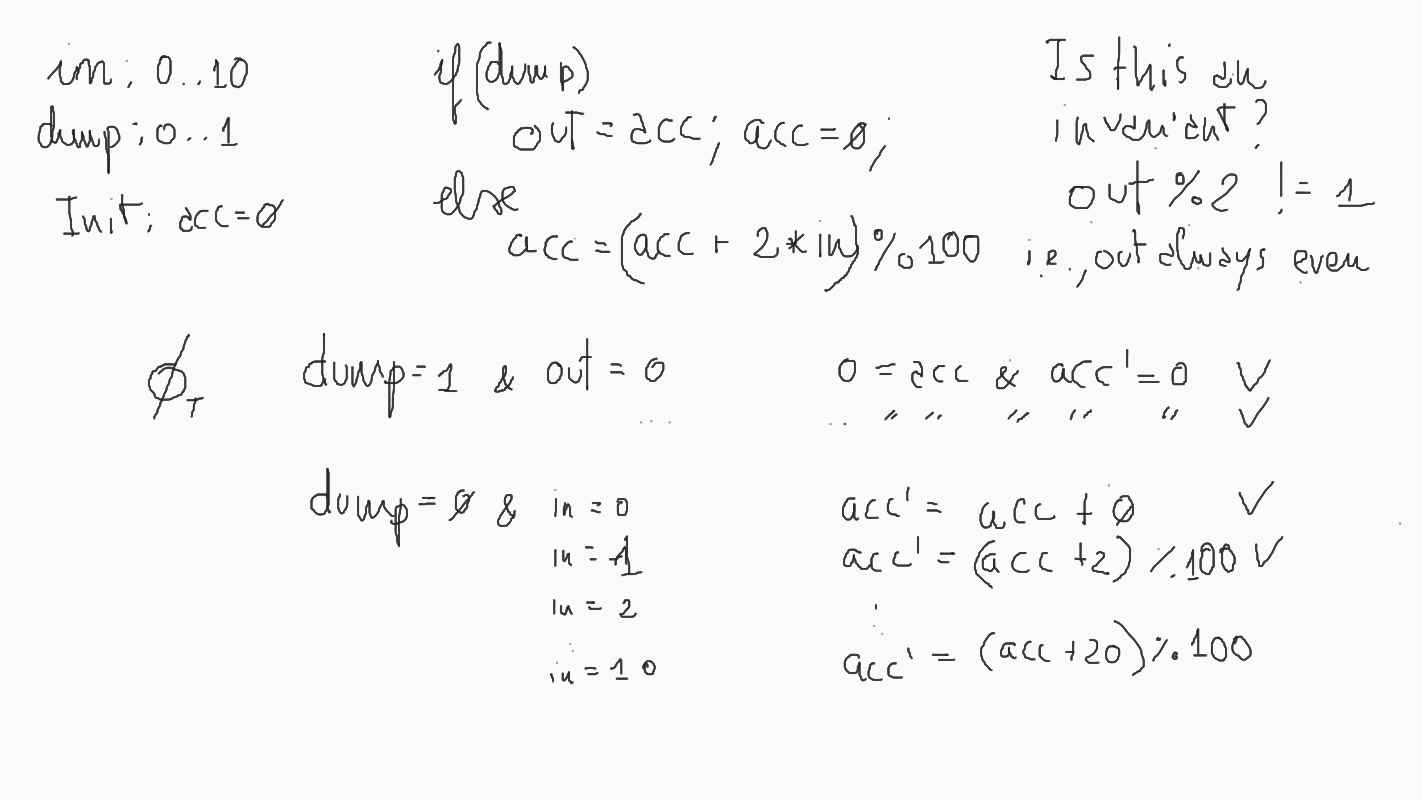 in: 0..10
dump: 0..1
Init: acc=0
if (dump)
out = acc; acc=0;
else
acc = (acc + 2*in) % 100
Is this an
invariant?
out % 2 != 1
i.e., out always even
ϕT dump=1 & out = 0 0 = acc & acc' = 0 ✓
... .. " " " " " ✓
dump=0 & in = 0 acc' = acc + 0 ✓
in = 1 acc' = (acc +2) %100 ✓
in = 2 :
in = 10 acc' = (acc +20) %100